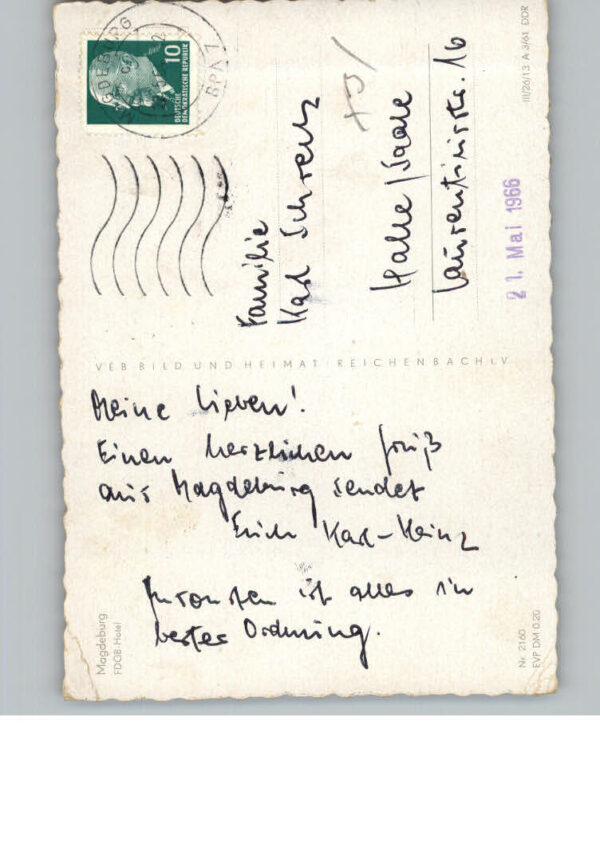 MAGDEBURG
BPA 1
10
DEUTSCHE
DEMOKRATISCHE REPUBLIK
Familie
Karl
Halle/Saale
Laurentiusstr. 16
21. Mai 1966
III/26/13 A 3/61 DDR
VEB BILD UND HEIMAT REICHENBACH I.V
Meine Lieben!
Einen herzlichen Gruß
aus Magdeburg sendet
Euch Karl-Heinz
Ansonsten ist alles in
bester Ordnung.
Magdeburg
FDGB-Hotel
Nr. 2160
EVP DM 0.20